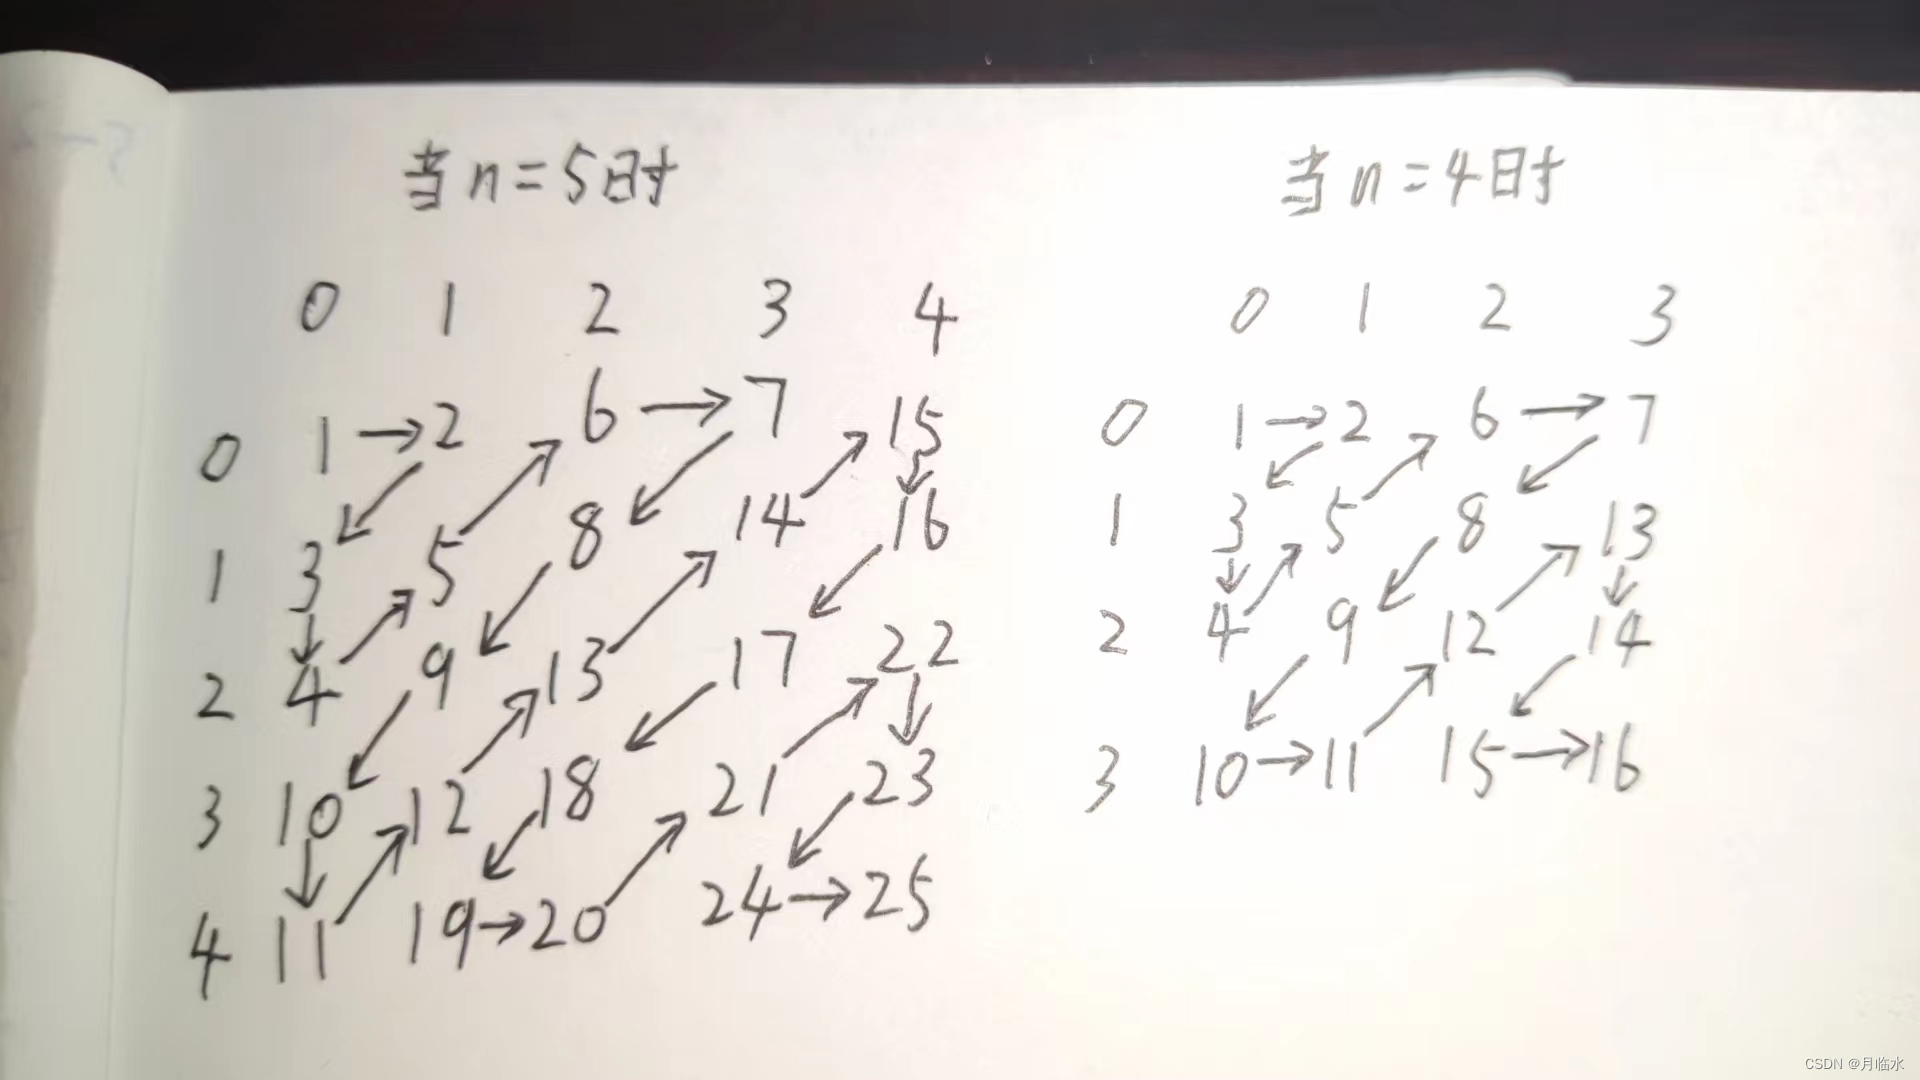 当n=5时
0 1 2 3 4
0 1→2 6→7 15
1 3 5 8 14 16
2 4 9 13 17 22
3 10 12 18 21 23
4 11 19→20 24→25
当n=4时
0 1 2 3
0 1→2 6→7
1 3 5 8 13
2 4 9 12 14
3 10→11 15→16
CSDN @月临水